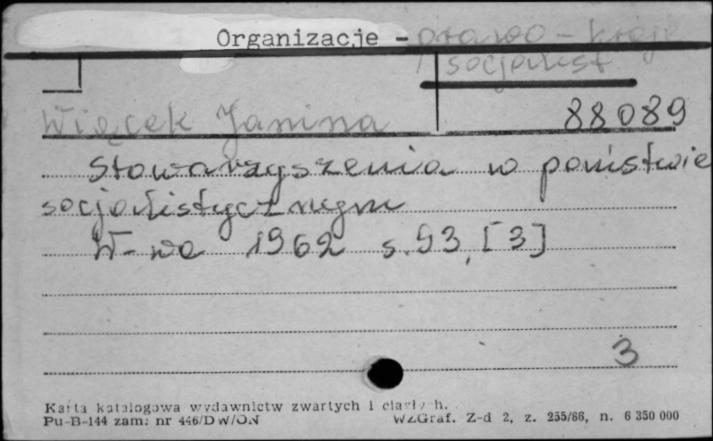 Organizacje - prawo - kraje
socjalist.
Więcek Janina 88089
Stowarzyszenia w państwie
socjalistycznym
W-wa 1962 s. 93, [3]
3
Karta katalogowa wydawnictw zwartych i ciągłych.
Pu-B-144 zam: nr 446/DW/ON WZGraf. Z-d 2, z. 255/66, n. 6 350 000